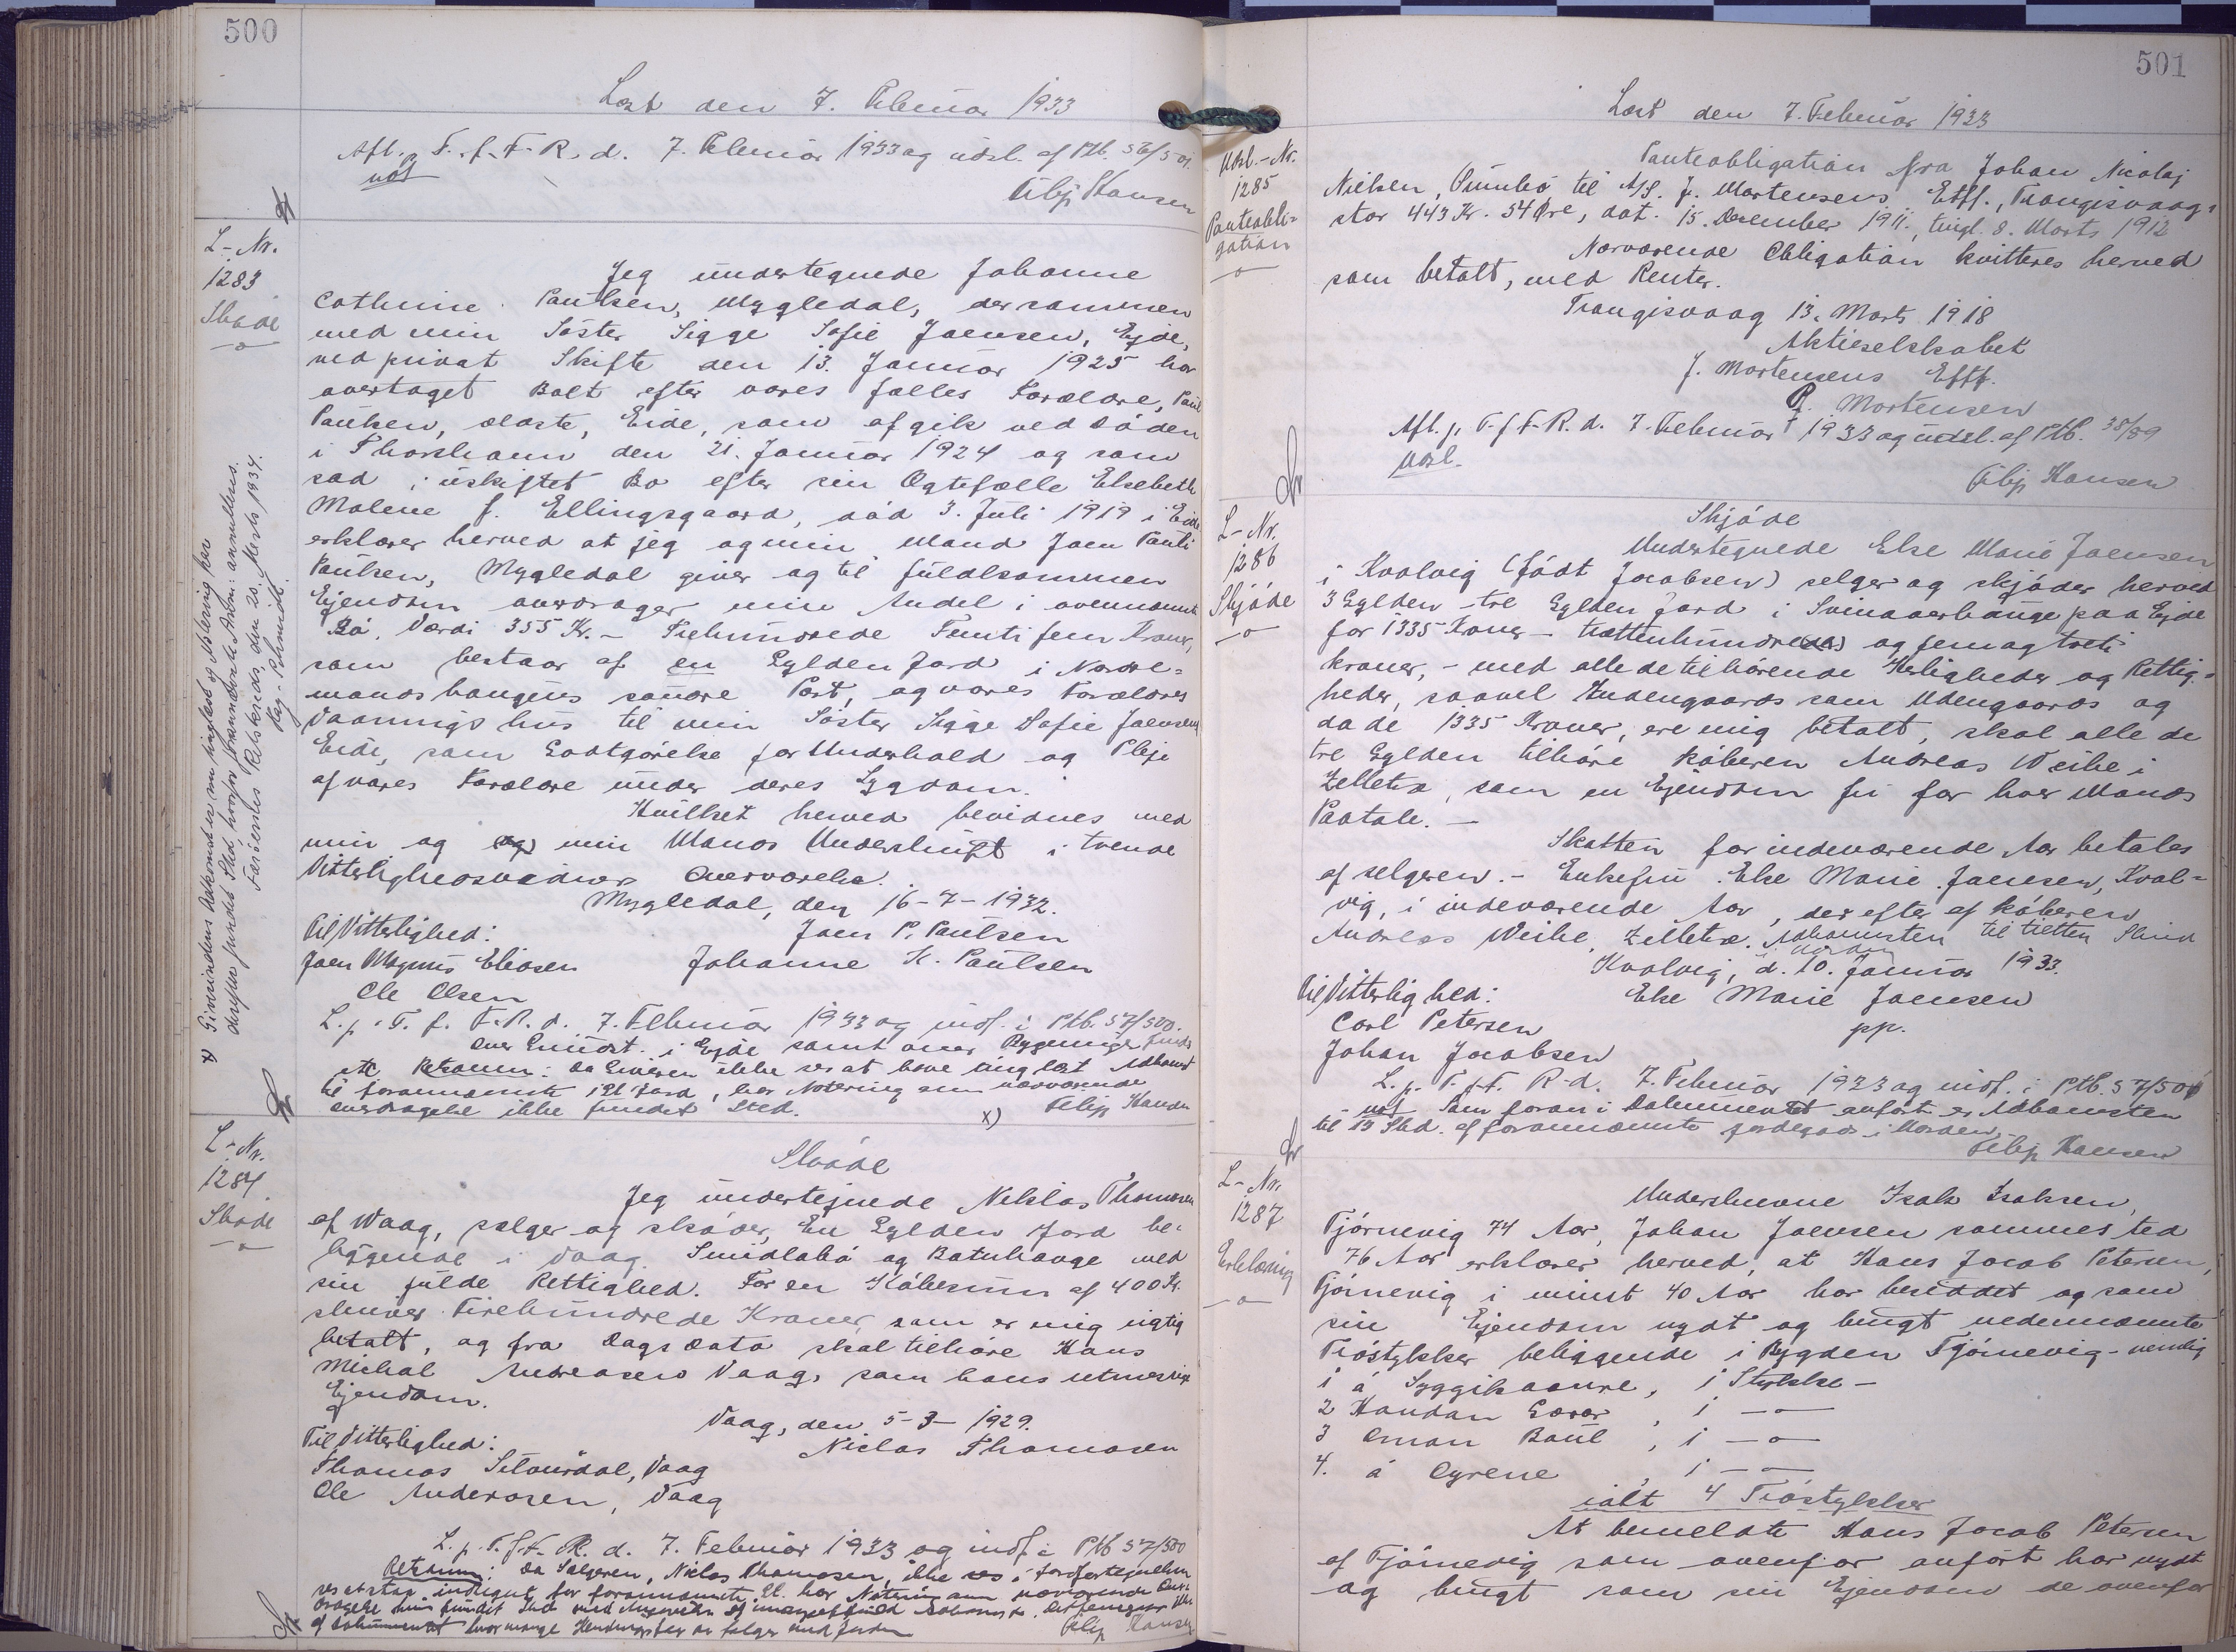 500
Læst den 7. Februar 1933
Afl. p. T. f. F. R. d. 7. Februar 1933 og udsl. af Ptb. 56/501.
not
Filip Hansen
L-Nr.
1283
Skøde
Jeg undertegnede Johanne
Cathrine Paulsen, Mygledal, der sammen
med min Söster Sigge Sofie Joensen, Ejde,
ved privat Skifte den 13. Januar 1925 har
overtaget Bolt efter vores fælles Forældre, Paul
Paulsen, ældste, Eide, som afgik ved Döden
i Thorshavn den 21. Januar 1924 og som
sad i uskiftet Bo efter sin Ægtefælle Elsebeth
Malene f. Ellingsgaard, död 3. Juli 1919 i Eide
erklærer herved at jeg og min Mand Joen Pauli
Paulsen, Mygledal giver og til fuldkommen
Ejendom overdrager min Andel i ovennævnte
Bö, Værdi 355 Kr. - Trehundrede Femti fem Kroner,
som bestaar af en Gylden Jord i Nordre-
mands haugens söndre Part, og vores Forældres
Vaanings hus til min Söster Sigge Sofie Joensen
Eide, som Godtgörelse for Underhold og Pleje
af vores Forældre under deres Sygdom.
Hvilket herved bevidnes med
min og (og) min Mands Underskrift i tvende
Vitterlighedsvidners Overværelse.
Mygledal, den 16-7-1932.
Til Vitterlighed:
Joen P. Paulsen
Joen Magnus Eliasen
Johanne K. Paulsen
Ole Olsen
L. p. T. f. F. R. d. 7. Februar 1933 og indf. i Ptb. 57/500.
over Grundst. i Ejde samt over Bygninge
Retsanm: Da Giveren ikke ses at have tinglæst Adkomst
til forannævnte 1 Gl. Jord, har Notering om nærværende
overdragelse ikke fundet Sted. x)
Filip Hansen
x) Giverindens Adkomst er nu tinglæst og Notering har
derefter fundet Sted hvorfor foranværende Anm: annulleres.
Færöernes Retskreds, den 20. Marts 1934.
L-Nr.
1284
Skøde
Skøde
Jeg undertejnede Niklas Thomasen
af Waag, sælger og skøder, En Gylden Jord be-
liggende i Vaag. Smidlabö og Batnhauge med
sin fulde Rettighed. For en Köbesum af 400 Kr.
skriver Firehundrede Kroner, som er mig rigtig
betalt, og fra Dags Dato skal tilhöre Hans
Michal Andreasen Vaag, som hans
Ejendom.
Vaag, den 5-3-1929.
Til Vitterlighed:
Niclas Thomasen
Thomas Vaag
Ole Andreasen, Vaag
L. p. T. f. F. R. d. 7. Februar 1933 og indf. i Ptb 57/500
Retsanm: Da Sælgeren, Niclas Thomasen, ikke ses i
Filip Hansen
501
Læst den 7. Februar 1933
Udsl.-Nr.
1285
Panteobli-
gation
Panteobligation fra Johan Nicolaj
Nielsen, Sumbö til A/S. J. Mortensens Eftf., Trangisvaag,
stor 443 Kr. 54 Øre, dat. 15. December 1911, tingl. 8. Marts 1912
Nærværende Obligation kvitteres herved
som betalt, med Renter.
Trangisvaag 13. Marts 1918
Aktieselskabet
J. Mortensens Eftf.
P. Mortensen
Afl. p. T. f. F. R. d. 7. Februar 1933 og udsl. af Ptb. 38/89
Udsl.
Filip Hansen
L-Nr.
1286
Skjöde
Skjöde
Undertegnede Else Marie Joensen
i Kvalvig (födt Jacobsen) selger og skjöder herved
3 Gylden - tre Gylden Jord i Svinaaerhauge paa Ejde
for 1335 Kroner - trettenhundre og femogtreti
kroner, - med alle de tilhörende Herligheder og Rettig-
heder, saavel Indengaards som Udengaards og
da de 1335 Kroner, ere mig betalt, skal alle de
tre Gylden tilhöre köberen Andreas Weihe i
Zelletræ, som en Ejendom fri for hver Mands
Paatale. -
Skatten for indeværende Aar betales
af selgeren. - Enkefru Else Marie Joensen, Kval-
vig, i indeværende Aar, derefter af köberen
Andreas Weihe, Zelletræ. Adkomsten til tretten Skind
Kvalvig, d. 10. Januar 1933.
Til Vitterlighed:
Else Marie Joensen
Carl Petersen
pp.
Johan Jacobsen
L. p. T. f. F. R. d. 7. Februar 1933 og indf. i Ptb. 57/501
not Som foran i Dokumentet anfört er Adkomsten
til 13 Skd. af forannævnte jordegods i Orden.
Filip Hansen
L-Nr.
1287
Erklæring
Underskrevne Isak Isaksen,
Tjörnevig 74 Aar, Johan Joensen sammesteds
76 Aar erklærer herved, at Hans Jacob Petersen,
Tjörnevig i minst 40 Aar har besiddet og som
sin Ejendom nydt og brugt nedennævnte
Tröstykker beliggende i Bygden Tjörnevig - nemlig
1 á Syggikaanne, 1 Stykke -
2 Handan Gaar, 1 -o-
3 Oman Baul, 1 -o-
4. á Ogrene, 1 -o-
ialt 4 Tröstykker
At bemeldte Hans Jacob Petersen
af Tjörnevig som ovenfor anfört har nydt
og brugt som sin Ejendom de ovenfor